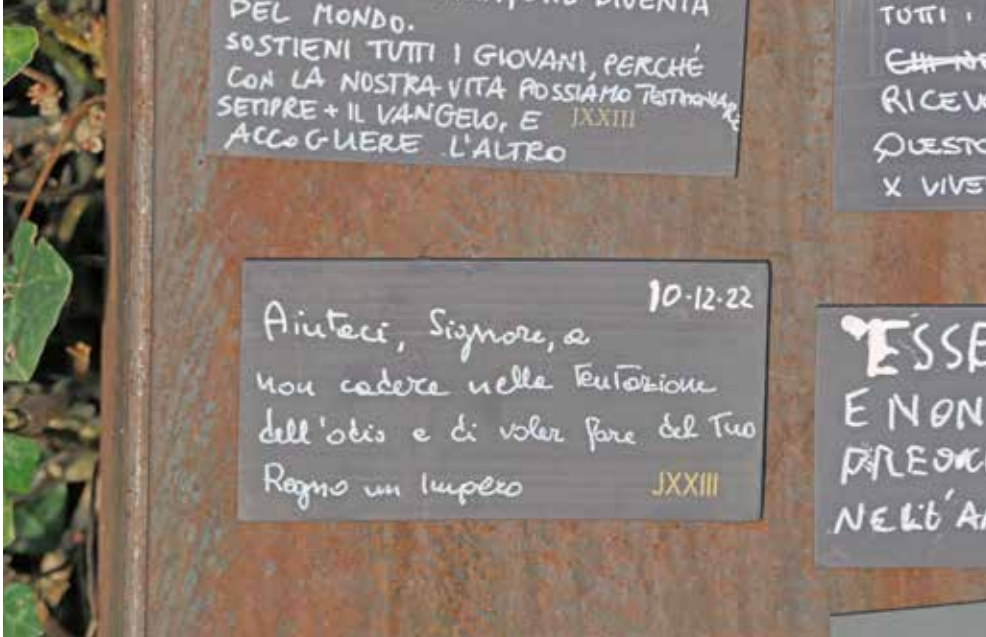 DIVENTA
DEL MONDO.
SOSTIENI TUTTI I GIOVANI, PERCHÉ
CON LA NOSTRA VITA POSSIAMO TESTIMONIARE
SEMPRE + IL VANGELO, E JXXIII
ACCOGLIERE L'ALTRO
TUTTI I
RICEV
QUESTO
X VIVE
10-12-22
Aiutaci, Signore, a
non cadere nella Tentazione
dell'odio e di voler fare del Tuo
Regno un Impero JXXIII
ESSE
E NON
PREOC
NELL'A